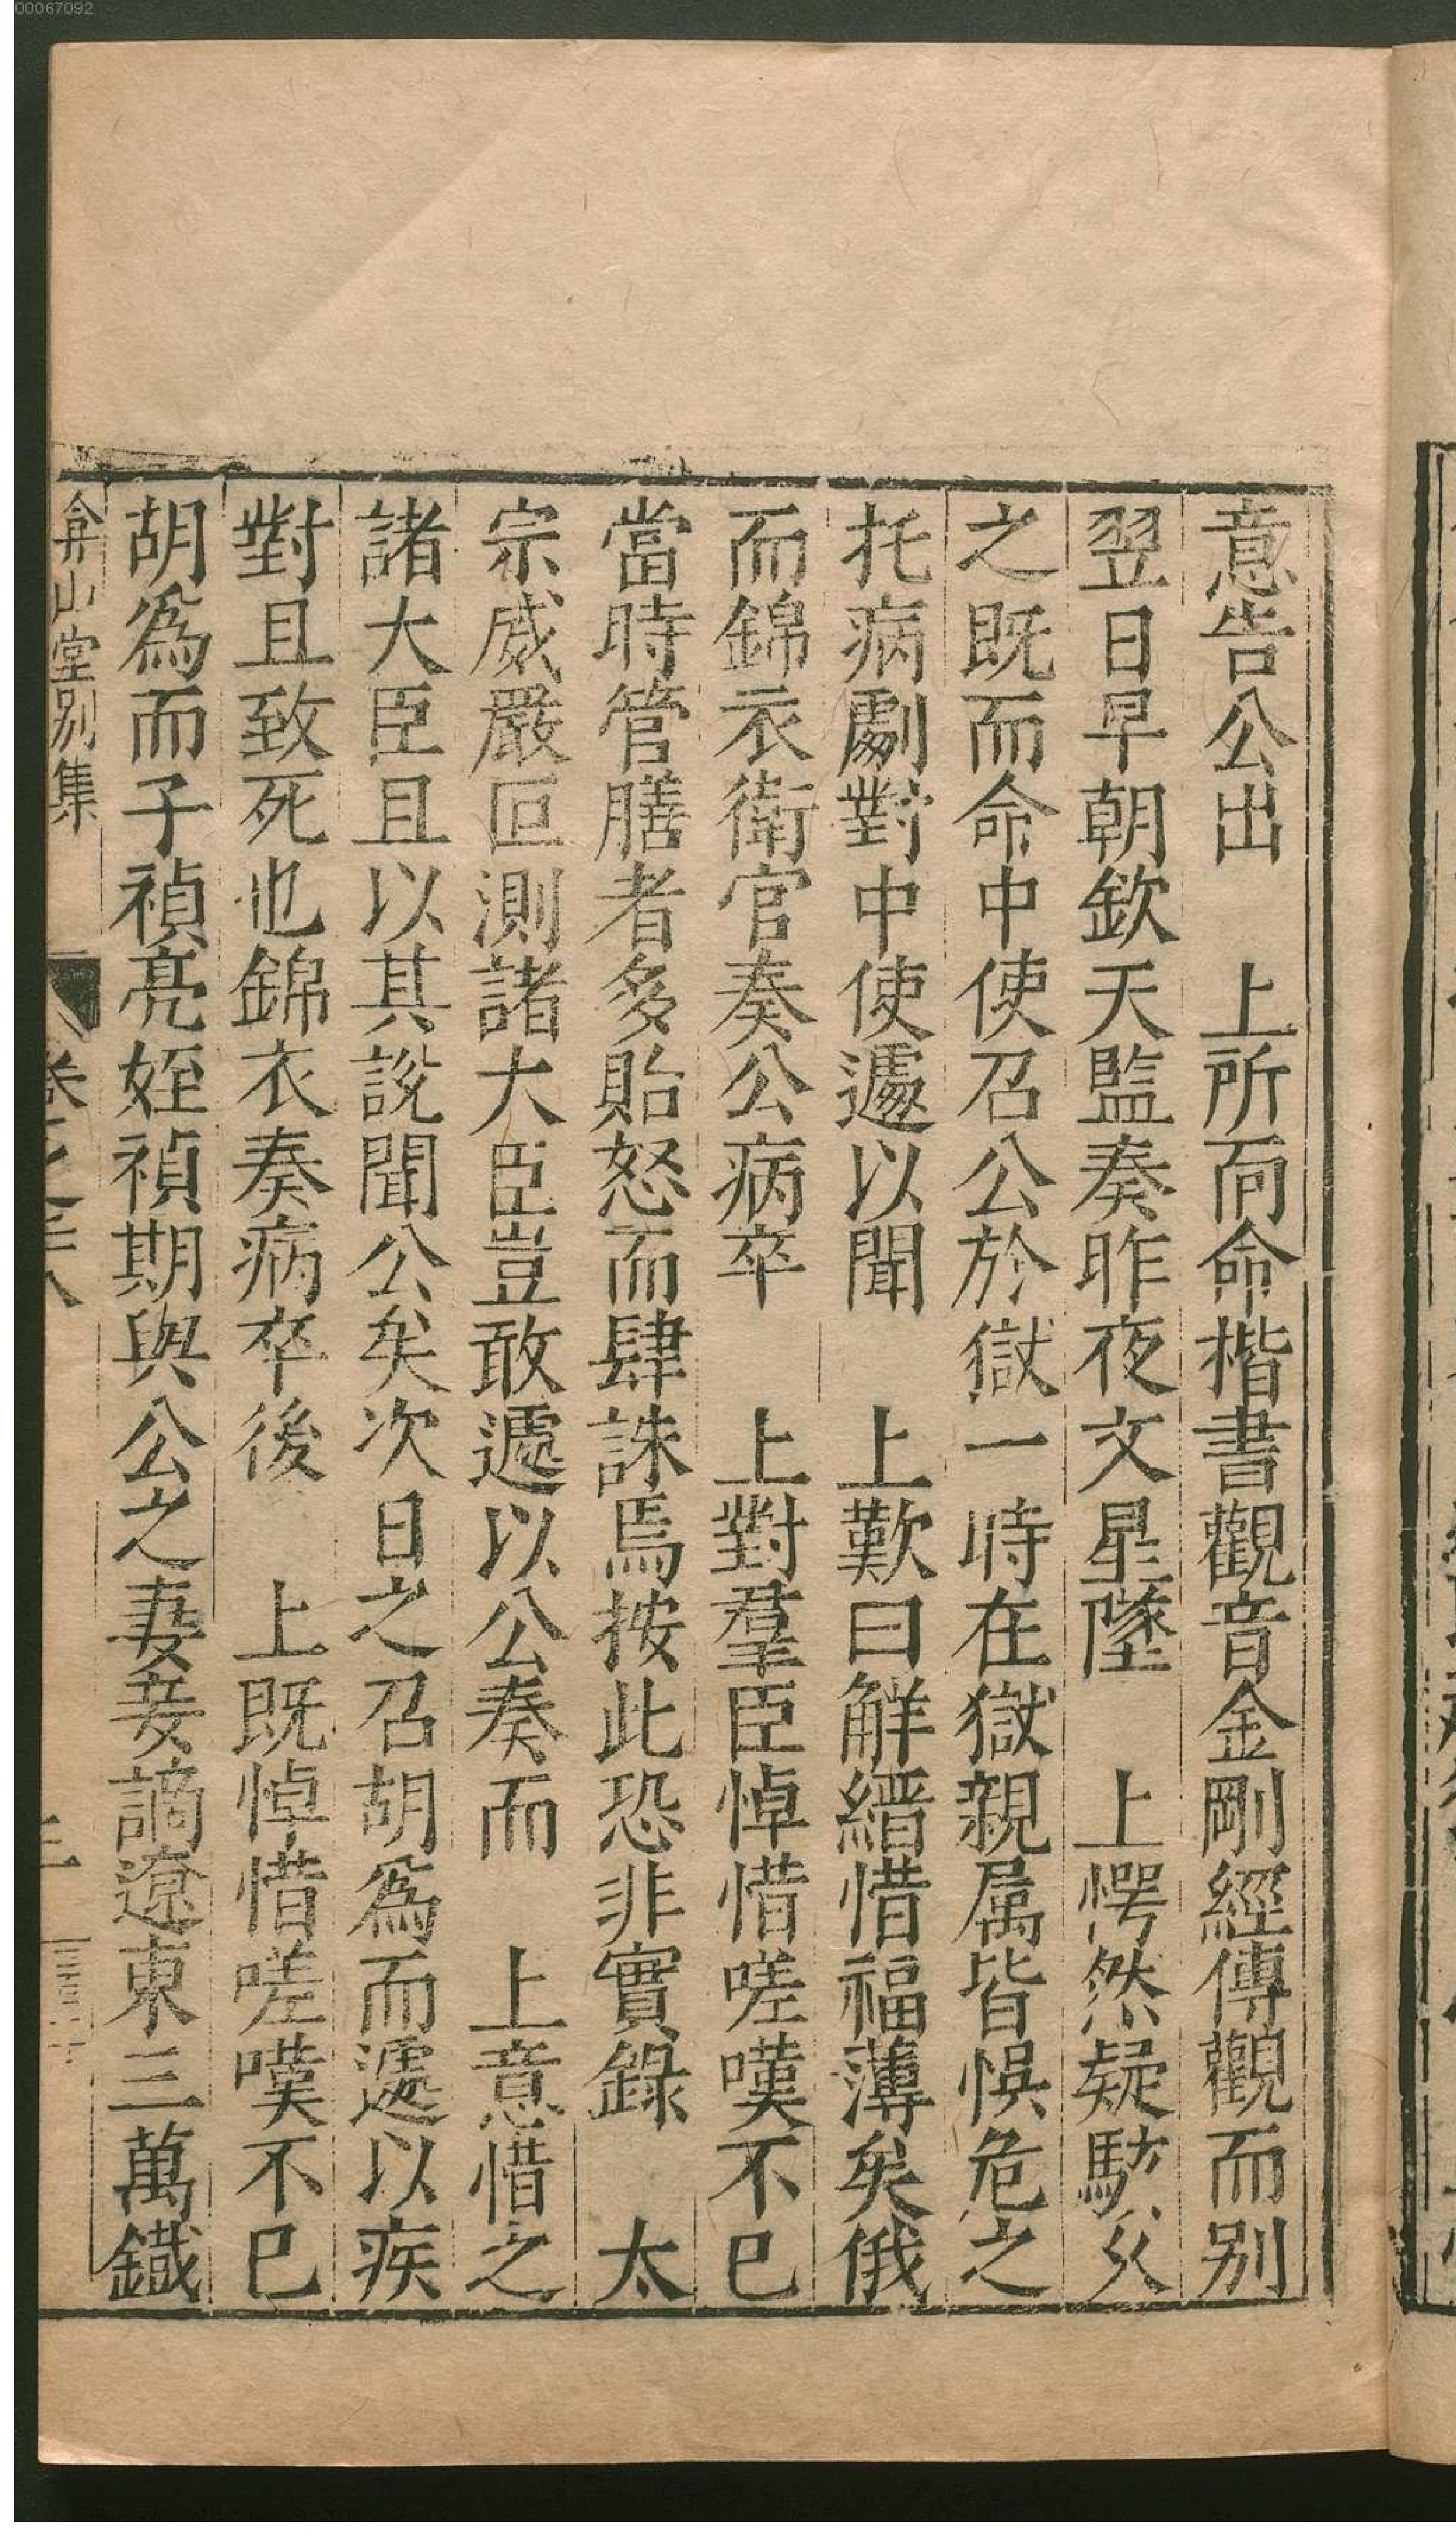 00067092
意告公出　上所向命楷書觀音金剛經傳觀而别
翌日早朝欽天監奏昨夜文星墜　上愕然疑駭久
之既而命中使召公於獄一時在獄親属皆悞危之
托病劇對中使遽以聞　上歎曰觧縉惜福薄矣俄
而錦衣衛官奏公病卒　上對羣臣悼惜嗟嘆不已
當時管膳者多貽怒而肆誅焉按此恐非實錄　太
宗威嚴叵測諸大臣豈敢遽以公奏而　上意惜之
諸大臣且以其説聞公矣次日之召胡爲而遽以疾
對且致死也錦衣奏病卒後　上既悼惜嗟嘆不已
胡爲而子禎亮姪禎期與公之妻妾謫遼東三萬鐡
弇山堂别集